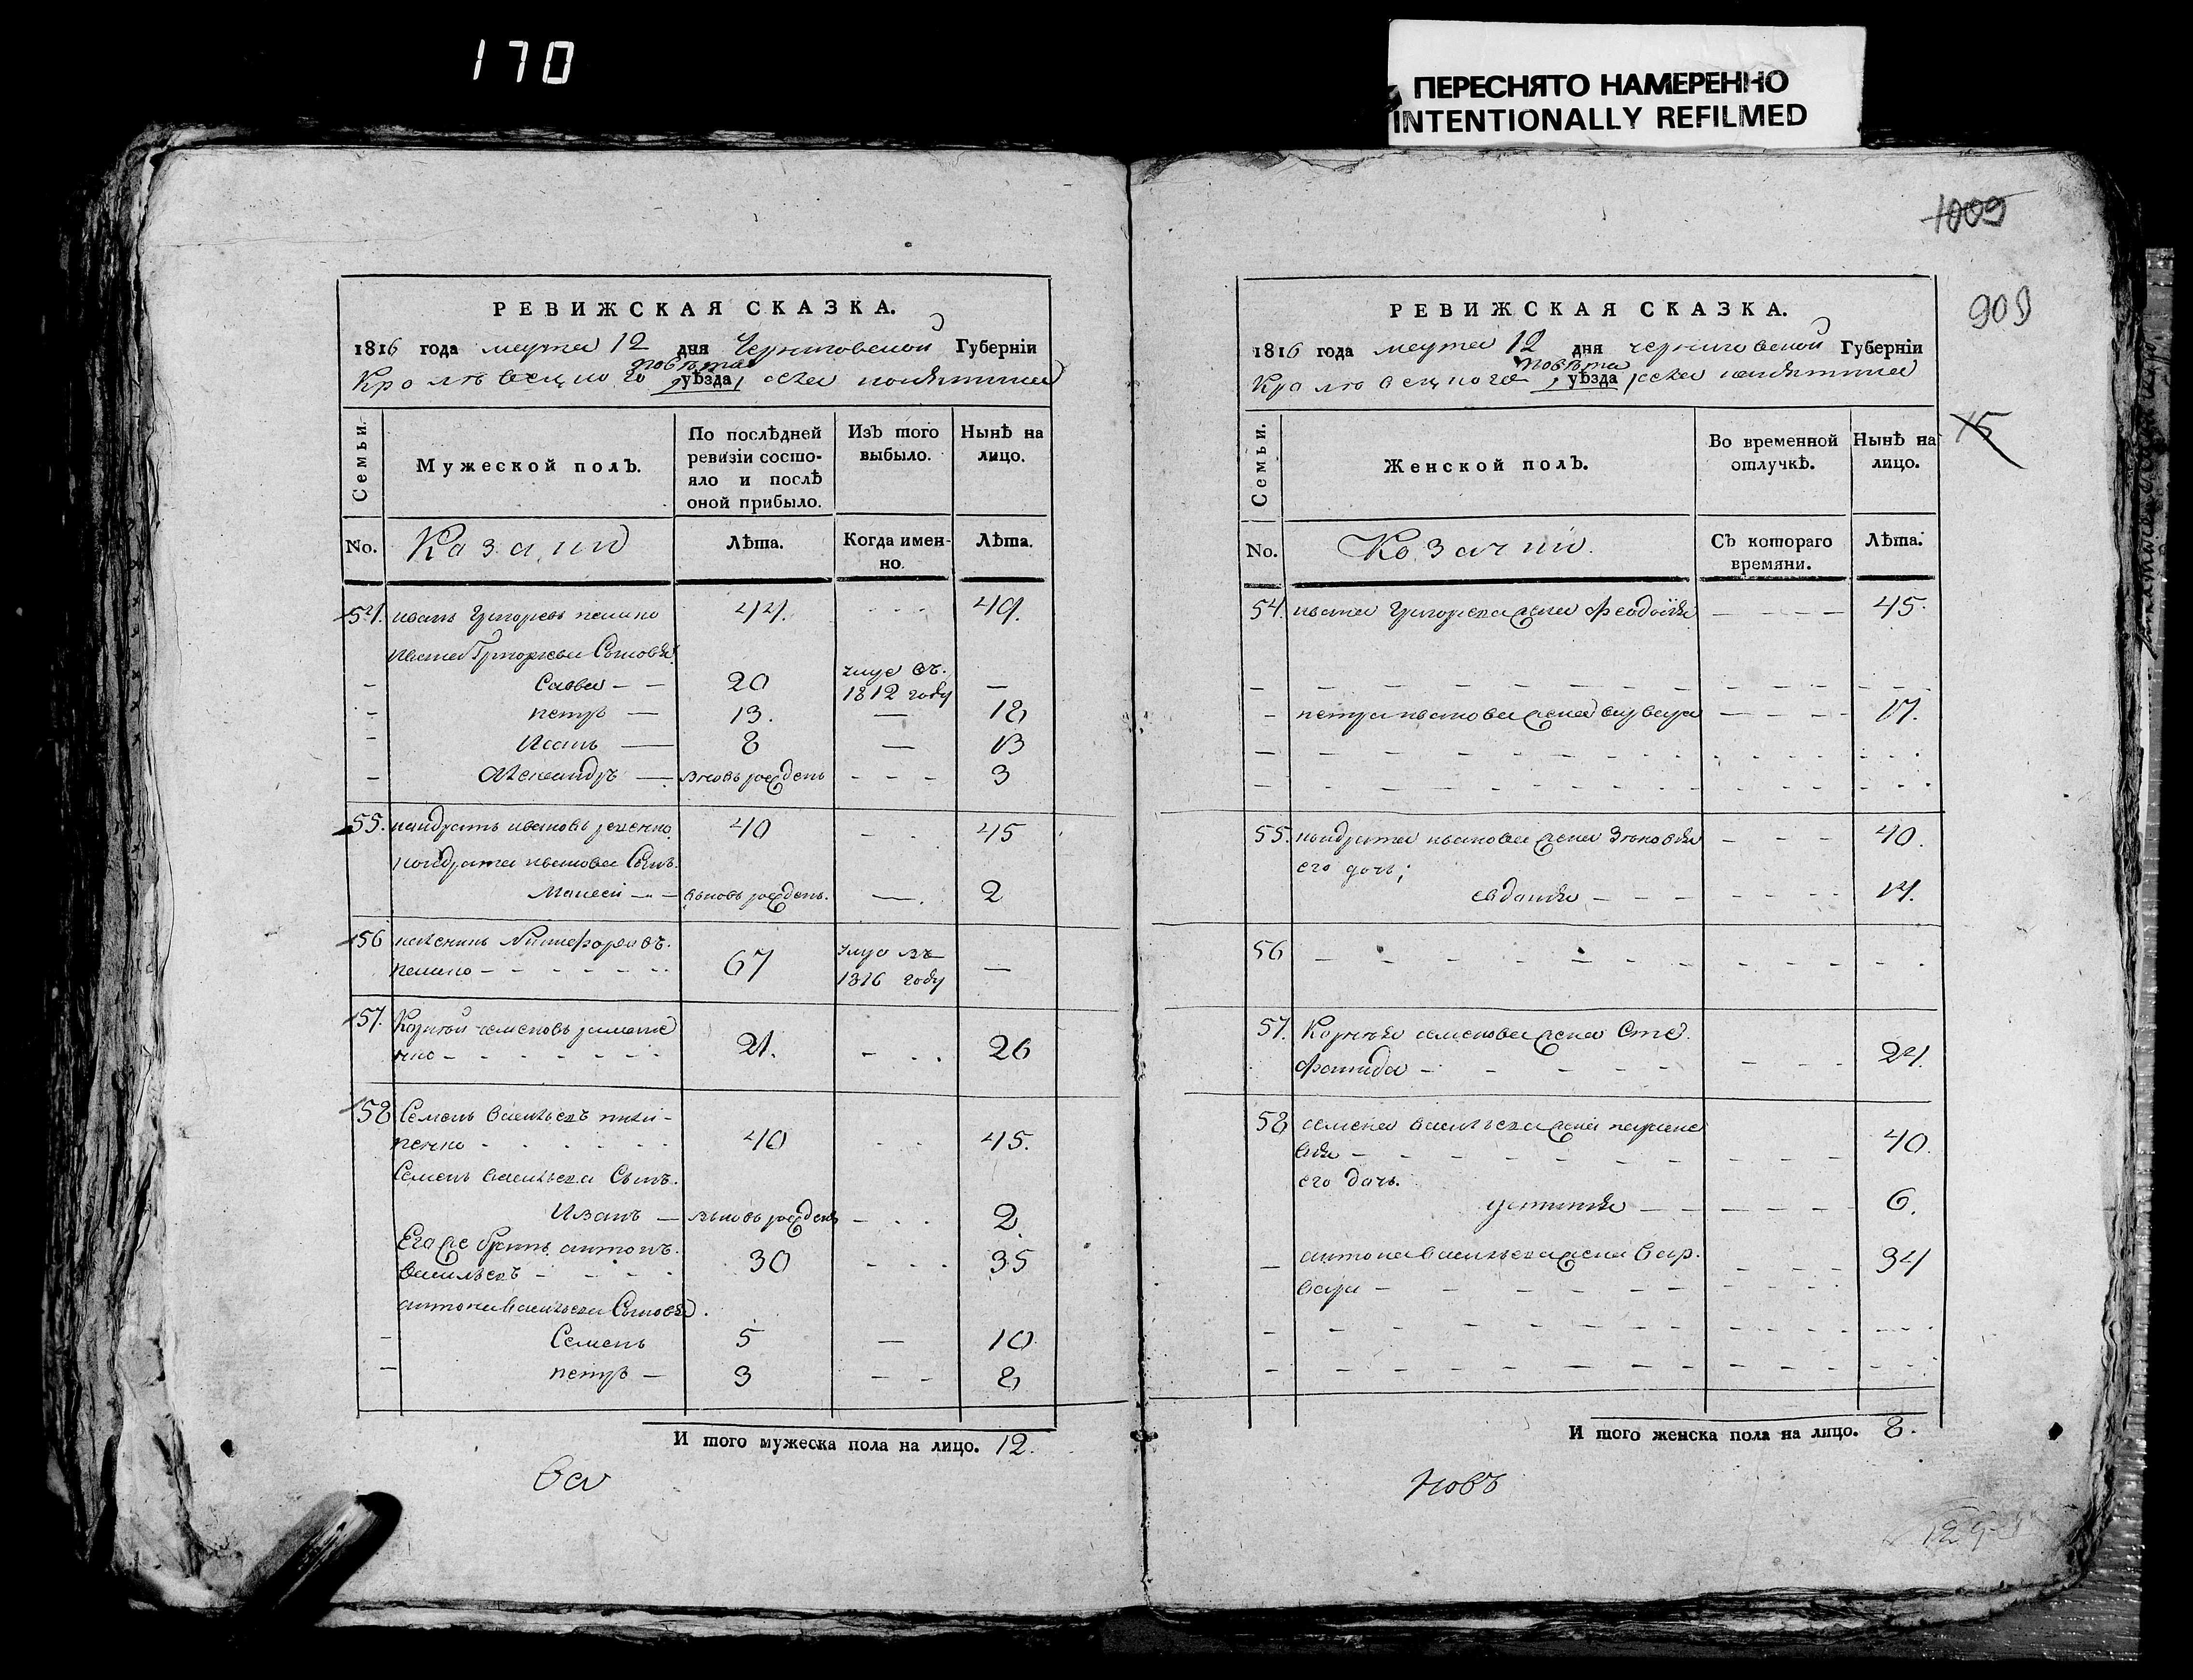 170
ПЕРЕСНЯТО НАМЕРЕННО
INTENTIONALLY REFILMED
1009
909
15
РЕВИЖСКАЯ СКАЗКА.
1816 года марта 12 дня Черниговской Губернiи
повѣта
Кролевецкого уѣзда,
Семьи.
Мужеской полъ.
По послѣдней ревизiи состо-
яло и послѣ оной прибыло.
Изъ того выбыло.
Нынѣ на лицо.
No.
Козаки
Лѣта.
Когда имен-
но.
Лѣта.
54. иванъ Григоревъ 44. 49.
Ивана Григорева Сыновья
Савва 20 умре въ 1812 году
петръ 13. 18
Иванъ 8 13
Александръ вновь рожденъ 3
55. кондратъ ивановъ 40 45
кондрата иванова Сынъ.
Моисей вновь рожденъ. 2
56 Никифоровъ 67 умре въ 1816 году
57. Корнѣй семеновъ 21. 26
58 Семенъ Васильевъ пили-
пенко 40 45.
Семена васильева Сынъ.
Иванъ вновь рожденъ 2
Его же братъ антонъ
Васильевъ 30 35
антона васильева Сыновья.
Семенъ 5 10
петръ 3 8
И того мужеска пола на лицо. 12.
РЕВИЖСКАЯ СКАЗКА.
1816 года марта 12 дня черниговской Губернiи
повѣта
Кролевецкого уѣзда
Семьи.
Женской полъ.
Во временной отлучкѣ.
Нынѣ на лицо.
No.
Козачки.
Съ котораго времяни.
Лѣта.
54. ивана Григорева жена Феодосiя 45.
петра иванова жена варвара 17.
55. кондрата иванова жена Зѣновiя 40.
его дочь;
евдокiя 14.
56
57. Корнѣя семенова жена Сте
фанида 24.
58 семена васильева жена параске
вiя 40.
его дочь.
устинiя 6.
антона васильева жена Вар
вара 34
И того женска пола на лицо. 8.
новъ